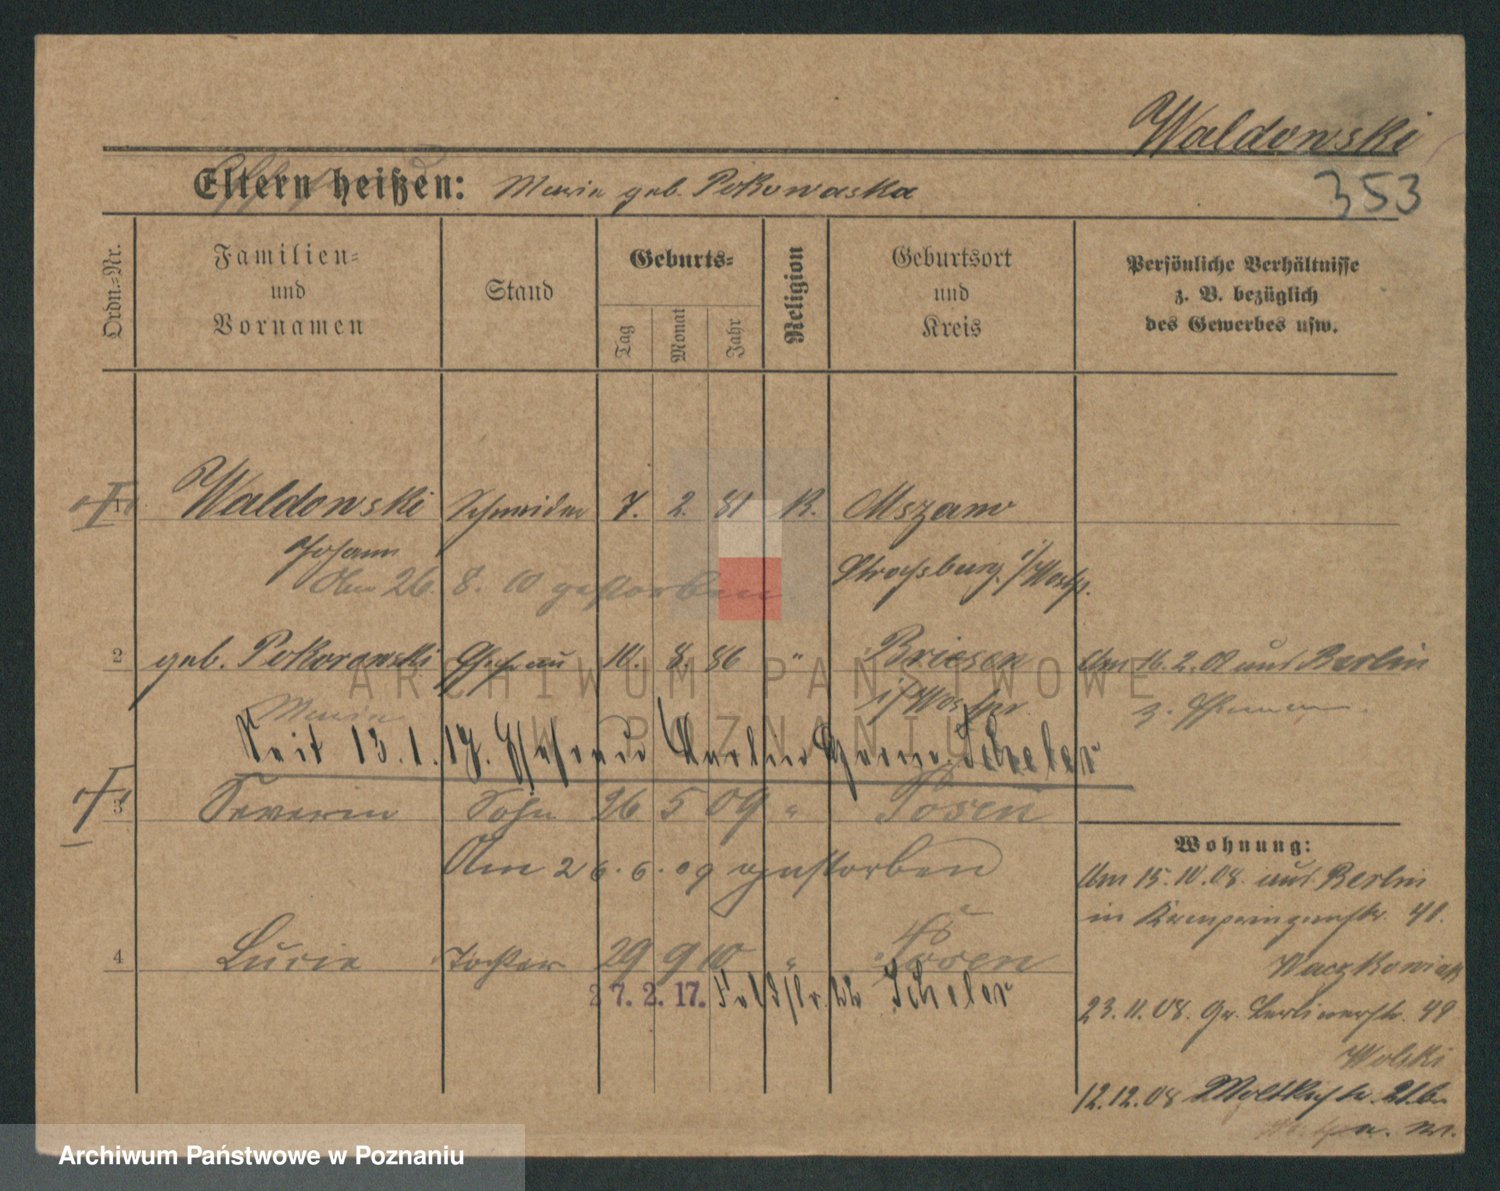 Waldowski
Eltern heißen: Maria geb. Pokowaska
353
Ordn.=Nr.
Familien=
und
Vornamen
Stand
Geburts=
Tag
Monat
Jahr
Religion
Geburtsort
und
Kreis
Persönliche Verhältnisse
z. B. bezüglich
des Gewerbes usw.
1 Waldowski Schneider 7. 2. 81 K. Mszano
Johann Strassburg i/Westp.
Am 26. 8. 10 gestorben.
2 geb. Pokorowski Ehefrau 10. 8. 86 " Briesen Am 16. 2. 08 aus Berlin
Maria i/Westpr. z. Ehemann.
Seit 13. 1. 17. Ehefrau Scheler
3 Severin Sohn 26 5 09 " Posen
Am 26. 6. 09 gestorben
4 Lucie Tochter 29 9 10 " Posen
27. 2. 17. Scheler
Wohnung:
Am 15. 10. 08. aus Berlin
in 41.
Waczkowiak
23. 11. 08. Gr. Berlinerstr. 49
Wolski
12. 12. 08 Moltkestr. 21.b
ARCHIWUM PAŃSTWOWE
W POZNANIU
Archiwum Państwowe w Poznaniu